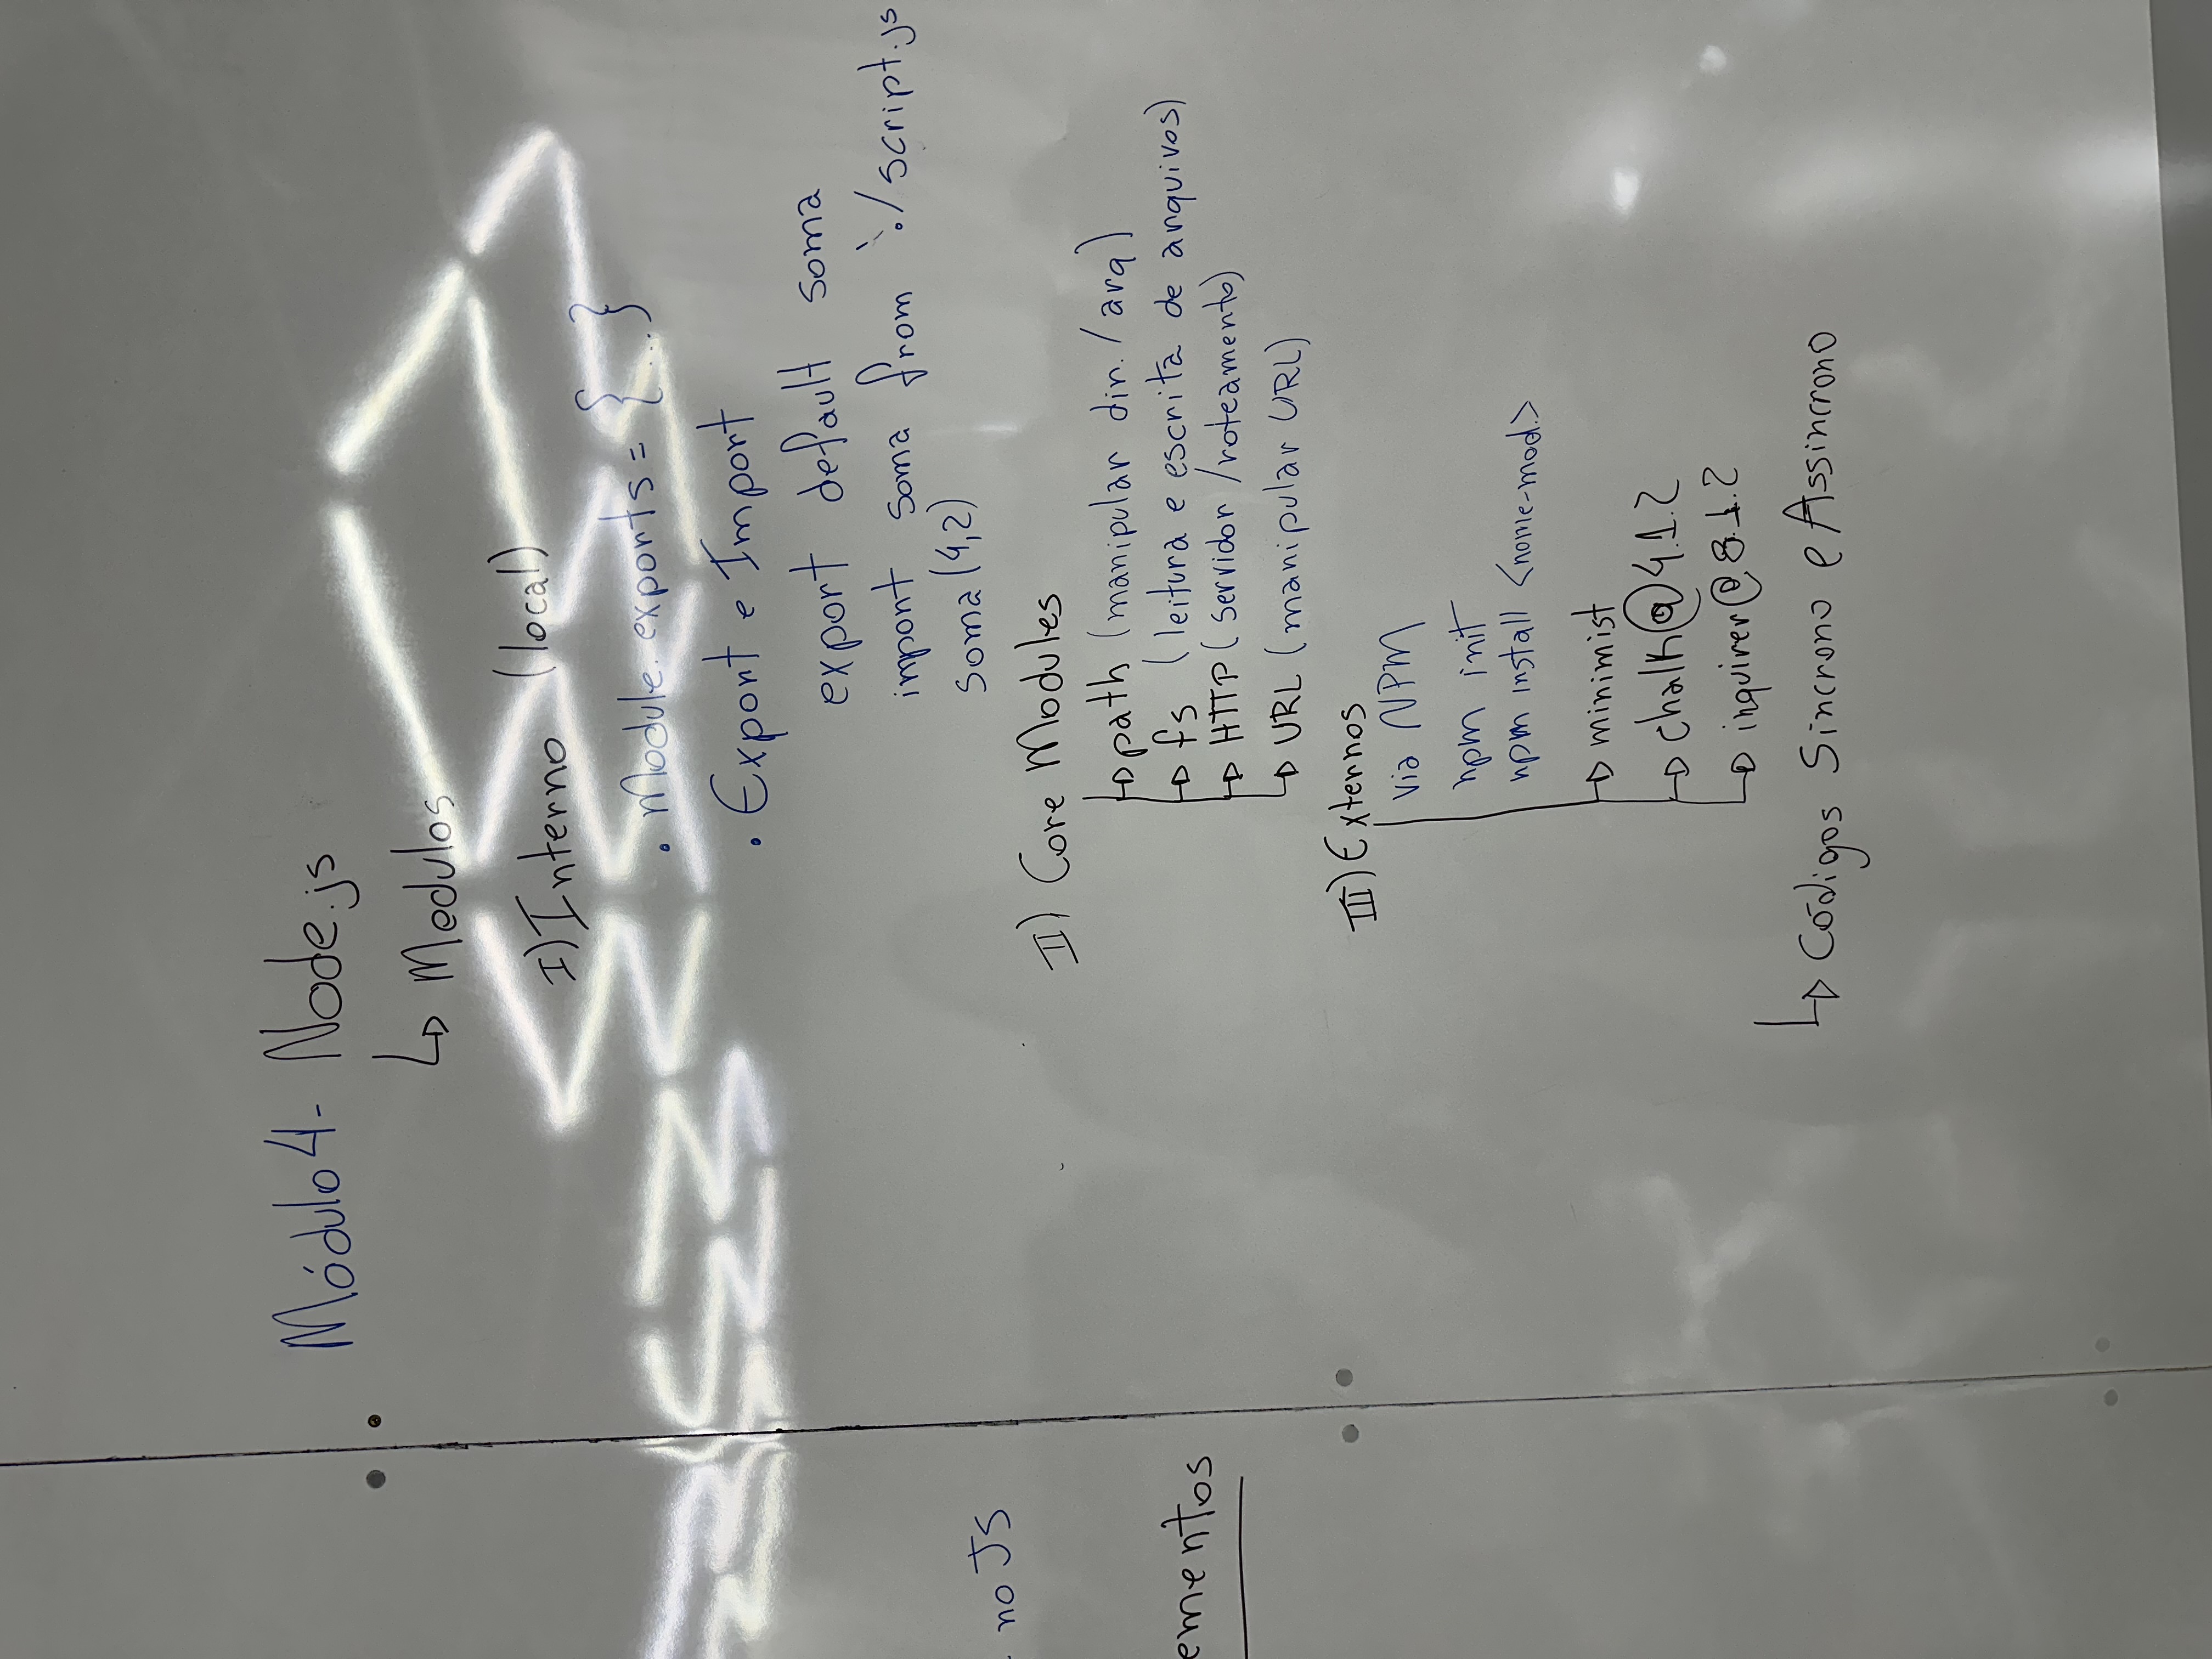 Módulo 4- Node.js
↳ Modulos
I) Interno (local)
. Module.exports = {...}
. Export e Import
export default soma
import soma from './script.js
soma(4,2)
. no JS
II) Core Modules
→ path (manipular dir. / arq)
→ fs (leitura e escrita de arquivos)
ementos
→ HTTP (servidor /roteamento)
→ URL (manipular URL)
III) Externos
via NPM
npm init
npm install <nome-mod.>
→ minimist
→ chalk@4.1.2
→ inquirer@8.1.2
↳ Códigos Sincrono e Assincrono